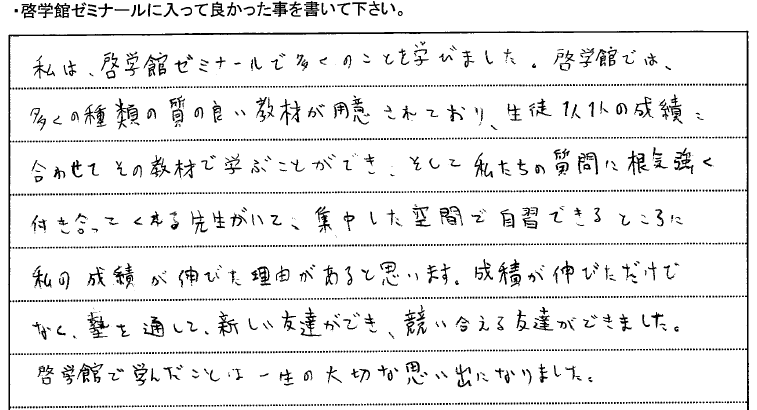 ・啓学館ゼミナールに入って良かった事を書いて下さい。
私は、啓学館ゼミナールで多くのことを学びました。啓学館では、
多くの種類の質の良い教材が用意されており、生徒1人1人の成績に
合わせてその教材で学ぶことができ、そして私たちの質問に根気強く
付き合ってくれる先生がいて、集中した空間で自習できるところに
私の成績が伸びた理由があると思います。成績が伸びただけで
なく、塾を通して、新しい友達ができ、競い合える友達ができました。
啓学館で学んだことは一生の大切な思い出になりました。